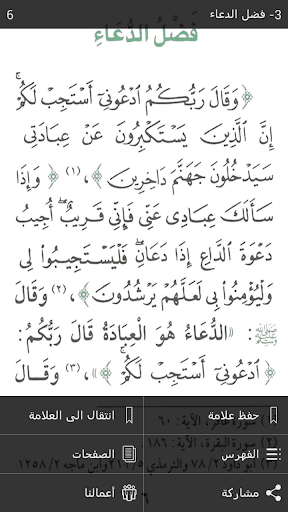 3- فضل الدعاء
6
فَضْلُ الدُّعَاءِ
﴿وَقَالَ رَبُّكُمُ ٱدْعُونِىٓ أَسْتَجِبْ لَكُمْ ۚ
إِنَّ ٱلَّذِينَ يَسْتَكْبِرُونَ عَنْ عِبَادَتِى
سَيَدْخُلُونَ جَهَنَّمَ دَاخِرِينَ﴾، (١) ﴿وَإِذَا
سَأَلَكَ عِبَادِى عَنِّى فَإِنِّى قَرِيبٌ ۖ أُجِيبُ
دَعْوَةَ ٱلدَّاعِ إِذَا دَعَانِ ۖ فَلْيَسْتَجِيبُوا۟ لِى
وَلْيُؤْمِنُوا۟ بِى لَعَلَّهُمْ يَرْشُدُونَ﴾ (٢) وَقَالَ
ﷺ: «الدُّعَاءُ هُوَ الْعِبَادَةُ قَالَ رَبُّكُمْ:
﴿ٱدْعُونِىٓ أَسْتَجِبْ لَكُمْ ۚ﴾»، (٣) وَقَالَ
حفظ علامة
انتقال الى العلامة
(١) سورة غافر، الآية: ٦٠
(٢) سورة البقرة، الآية: ١٨٦
الفهرس
الصفحات
(٣) أبو داود ٢/ ٧٨ والترمذي ٥/ ٢١١ وابن ماجه ٢/ ١٢٥٨
٦
مشاركة
أعمالنا